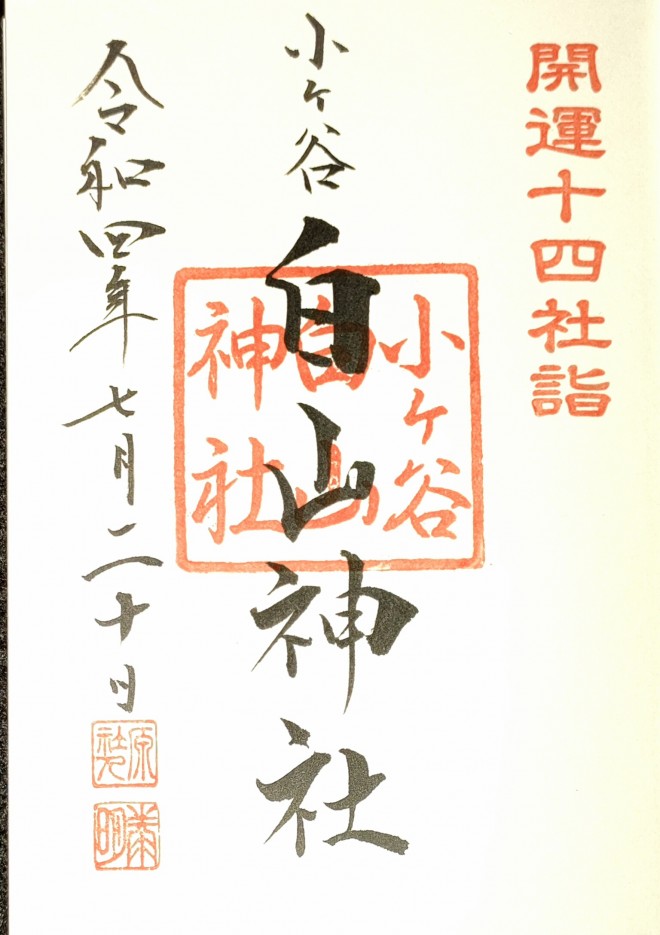 開運十四社詣
小ヶ谷
白山神社
小ヶ谷
白山
神社
令和四年七月二十日